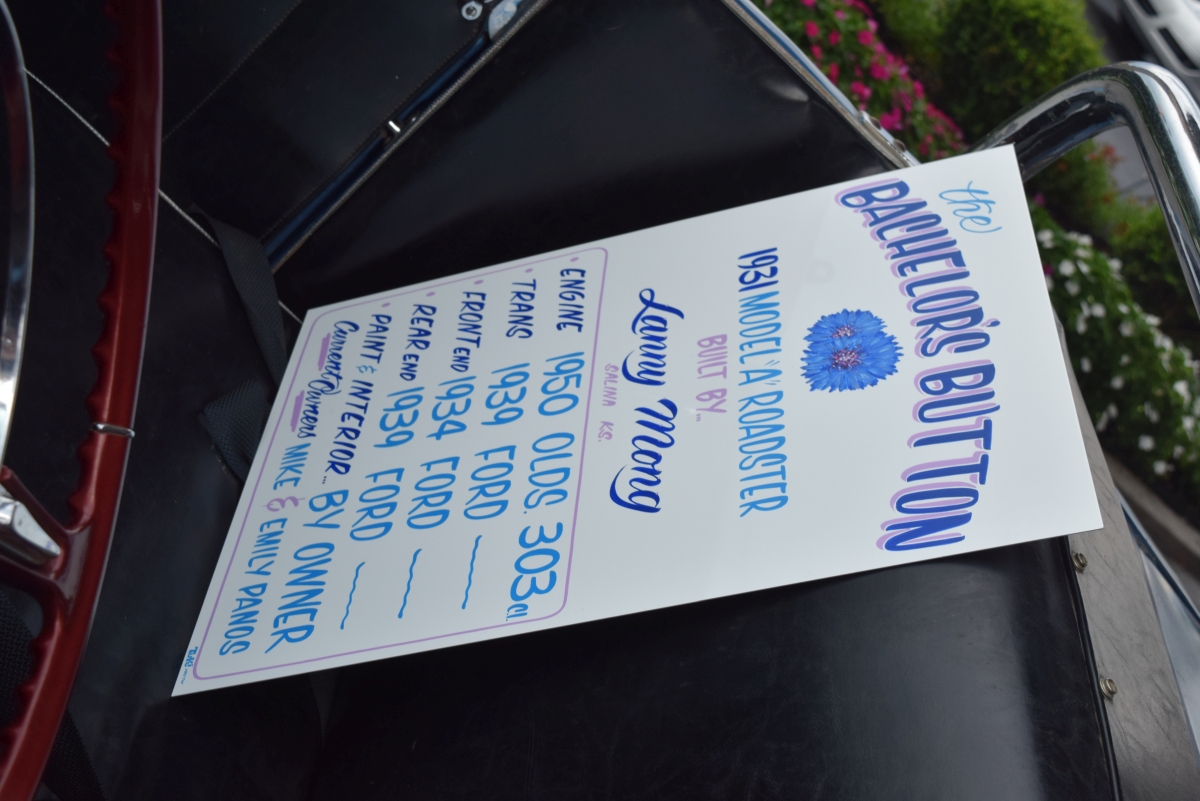 the
BACHELOR'S BUTTON
1931 MODEL "A" ROADSTER
BUILT BY...
Lanny Mong
SALINA KS.
• ENGINE 1950 OLDS. 303 C.I.
• TRANS 1939 FORD
• FRONT END 1934 FORD
• REAR END 1939 FORD
• PAINT & INTERIOR... BY OWNER
Current Owners MIKE & EMILY PANOS